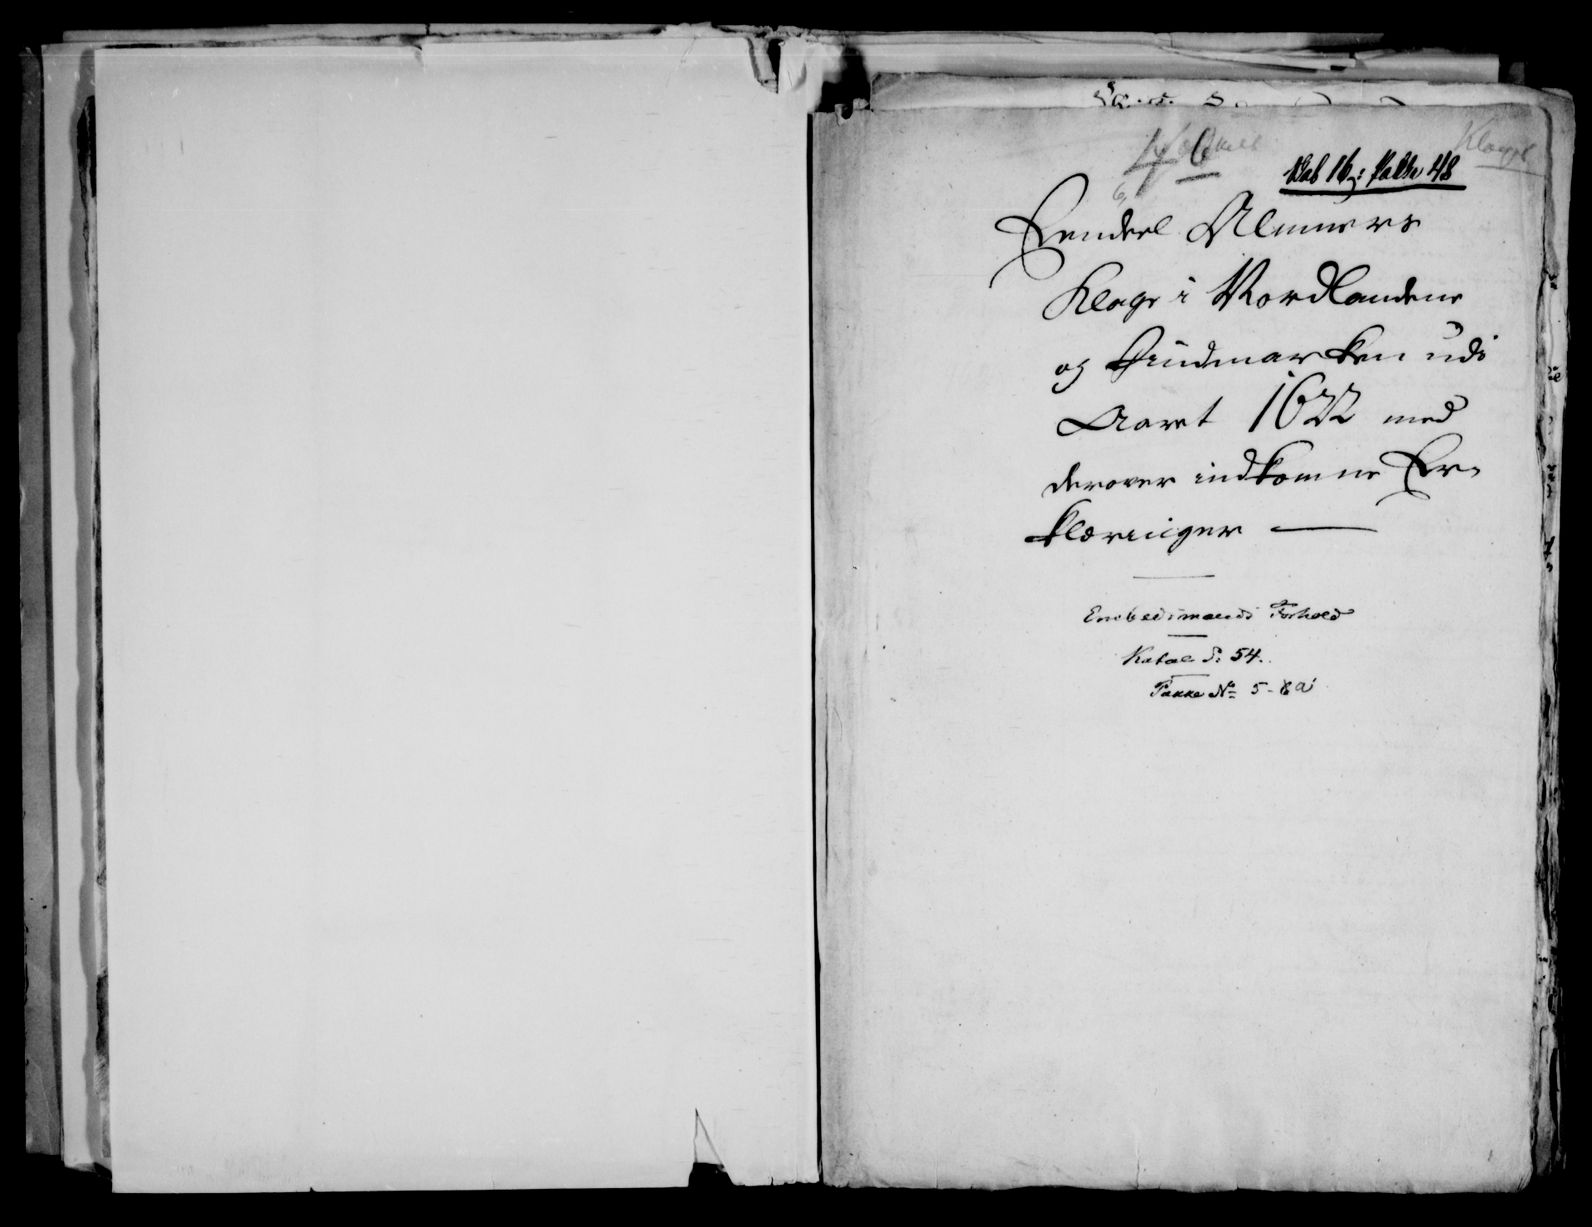 Klager
Kab 16: Pakke 48
Eendeel Almuers
Klage i Nordlandene
og Findmarken udi
Aaret 1622 med
derover indkomne Er-
klæringer —
Embedsmænds Forhold
Katal. S: 54.
Pakke No 5-8a